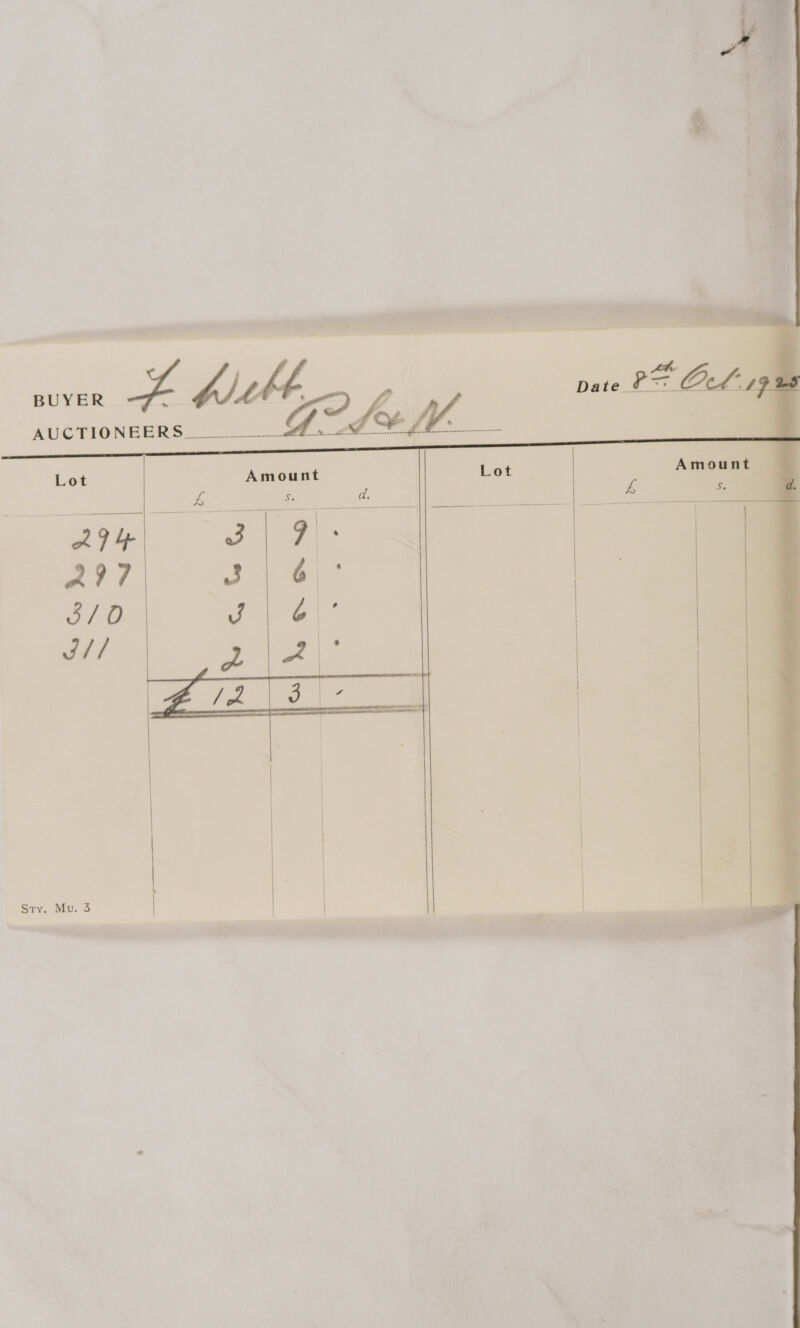 BUYER F. Webb
Date 8th Oct. 1925
AUCTIONEERS G.
Lot Amount Lot Amount
£ s. d. £ s. d.
294 3 9 •
297 3 6 •
310 3 6 •
311 2 2 •
£ 12 3 -
Sty. Mu. 3